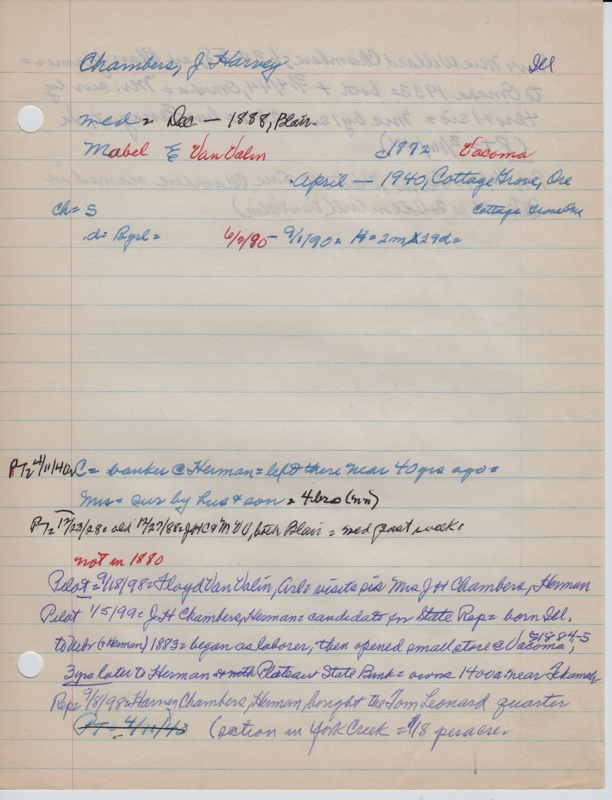 Chambers, J Harvey Ill
med = Dec — 1888, Blair.
Mabel E Van Valin c1872 Vacoma
April — 1940, Cottage Grove, Ore
ch = S Cottage Grove Ore
d = Byrl = 6/2/90 - 9/1/90 = H = 2m 29d =
PT2 4/11/40 = C = banker @ Herman = left there near 40 yrs ago =
Mrs = sur by hus & son = 4 bro (nn)
PT2 12/23/28 = old 12/27/88 = JHC & M VV, both Blair = med past week =
not in 1880
Pilot = 9/18/98 = Floyd Van Valin, Arl = visits sis Mrs J H Chambers, Herman
Pilot 1/5/99 = J H Chambers, Herman = candidate for State Rep = born Ill.
to Nebr (@ Herman) 1883 = began as laborer, then opened small store @ Vacoma, c1884-5
3 yrs later to Herman & with Plateau State Bank = owns 1400a near Tekamah
Rep 9/8/98 = Harvey Chambers, Herman, bought the Tom Leonard quarter
PT = 4/11/13 (section in York Creek = $18 per acre.